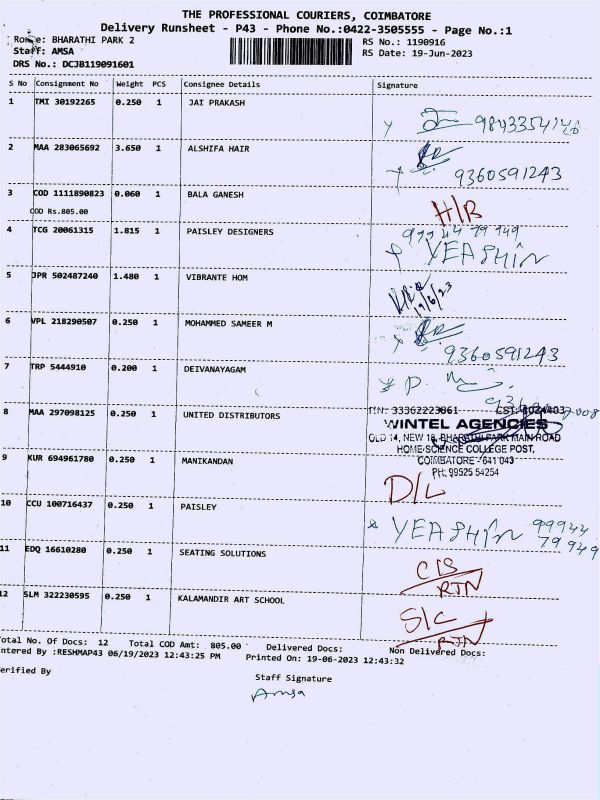 THE PROFESSIONAL COURIERS, COIMBATORE
Delivery Runsheet - P43 - Phone No.:0422-3505555 - Page No.:1
Route: BHARATHI PARK 2
RS No.: 1190916
Staff: AMSA
RS Date: 19-Jun-2023
DRS No.: DCJB119091601
S No Consignment No Weight PCS Consignee Details Signature
1 TMI 30192265 0.250 1 JAI PRAKASH
2 MAA 283065692 3.650 1 ALSHIFA HAIR
9360591243
3 COD 1111890823 0.060 1 BALA GANESH
COD Rs.805.00
H/B
4 TCG 20061315 1.815 1 PAISLEY DESIGNERS
99944 79 949
YEASHIN
5 JPR 502487240 1.480 1 VIBRANTE HOM
19/6/23
6 VPL 218290507 0.250 1 MOHAMMED SAMEER M
9360591243
7 TRP 5444910 0.200 1 DEIVANAYAGAM
8 MAA 297098125 0.250 1 UNITED DISTRIBUTORS
WINTEL AGENCIES
OLD 14, NEW 18, BHARATHI PARK MAIN ROAD
HOME SCIENCE COLLEGE POST,
COIMBATORE - 641 043
PH: 99525 54254
9 KUR 694961780 0.250 1 MANIKANDAN
D/L
10 CCU 100716437 0.250 1 PAISLEY
YEASHIN 99944
79949
11 EDQ 16610280 0.250 1 SEATING SOLUTIONS
C/S
RTN
12 SLM 322230595 0.250 1 KALAMANDIR ART SCHOOL
S/C
RTN
Total No. Of Docs: 12 Total COD Amt: 805.00 Delivered Docs: Non Delivered Docs:
Entered By :RESHMAP43 06/19/2023 12:43:25 PM Printed On: 19-06-2023 12:43:32
Verified By
Staff Signature
Amsa